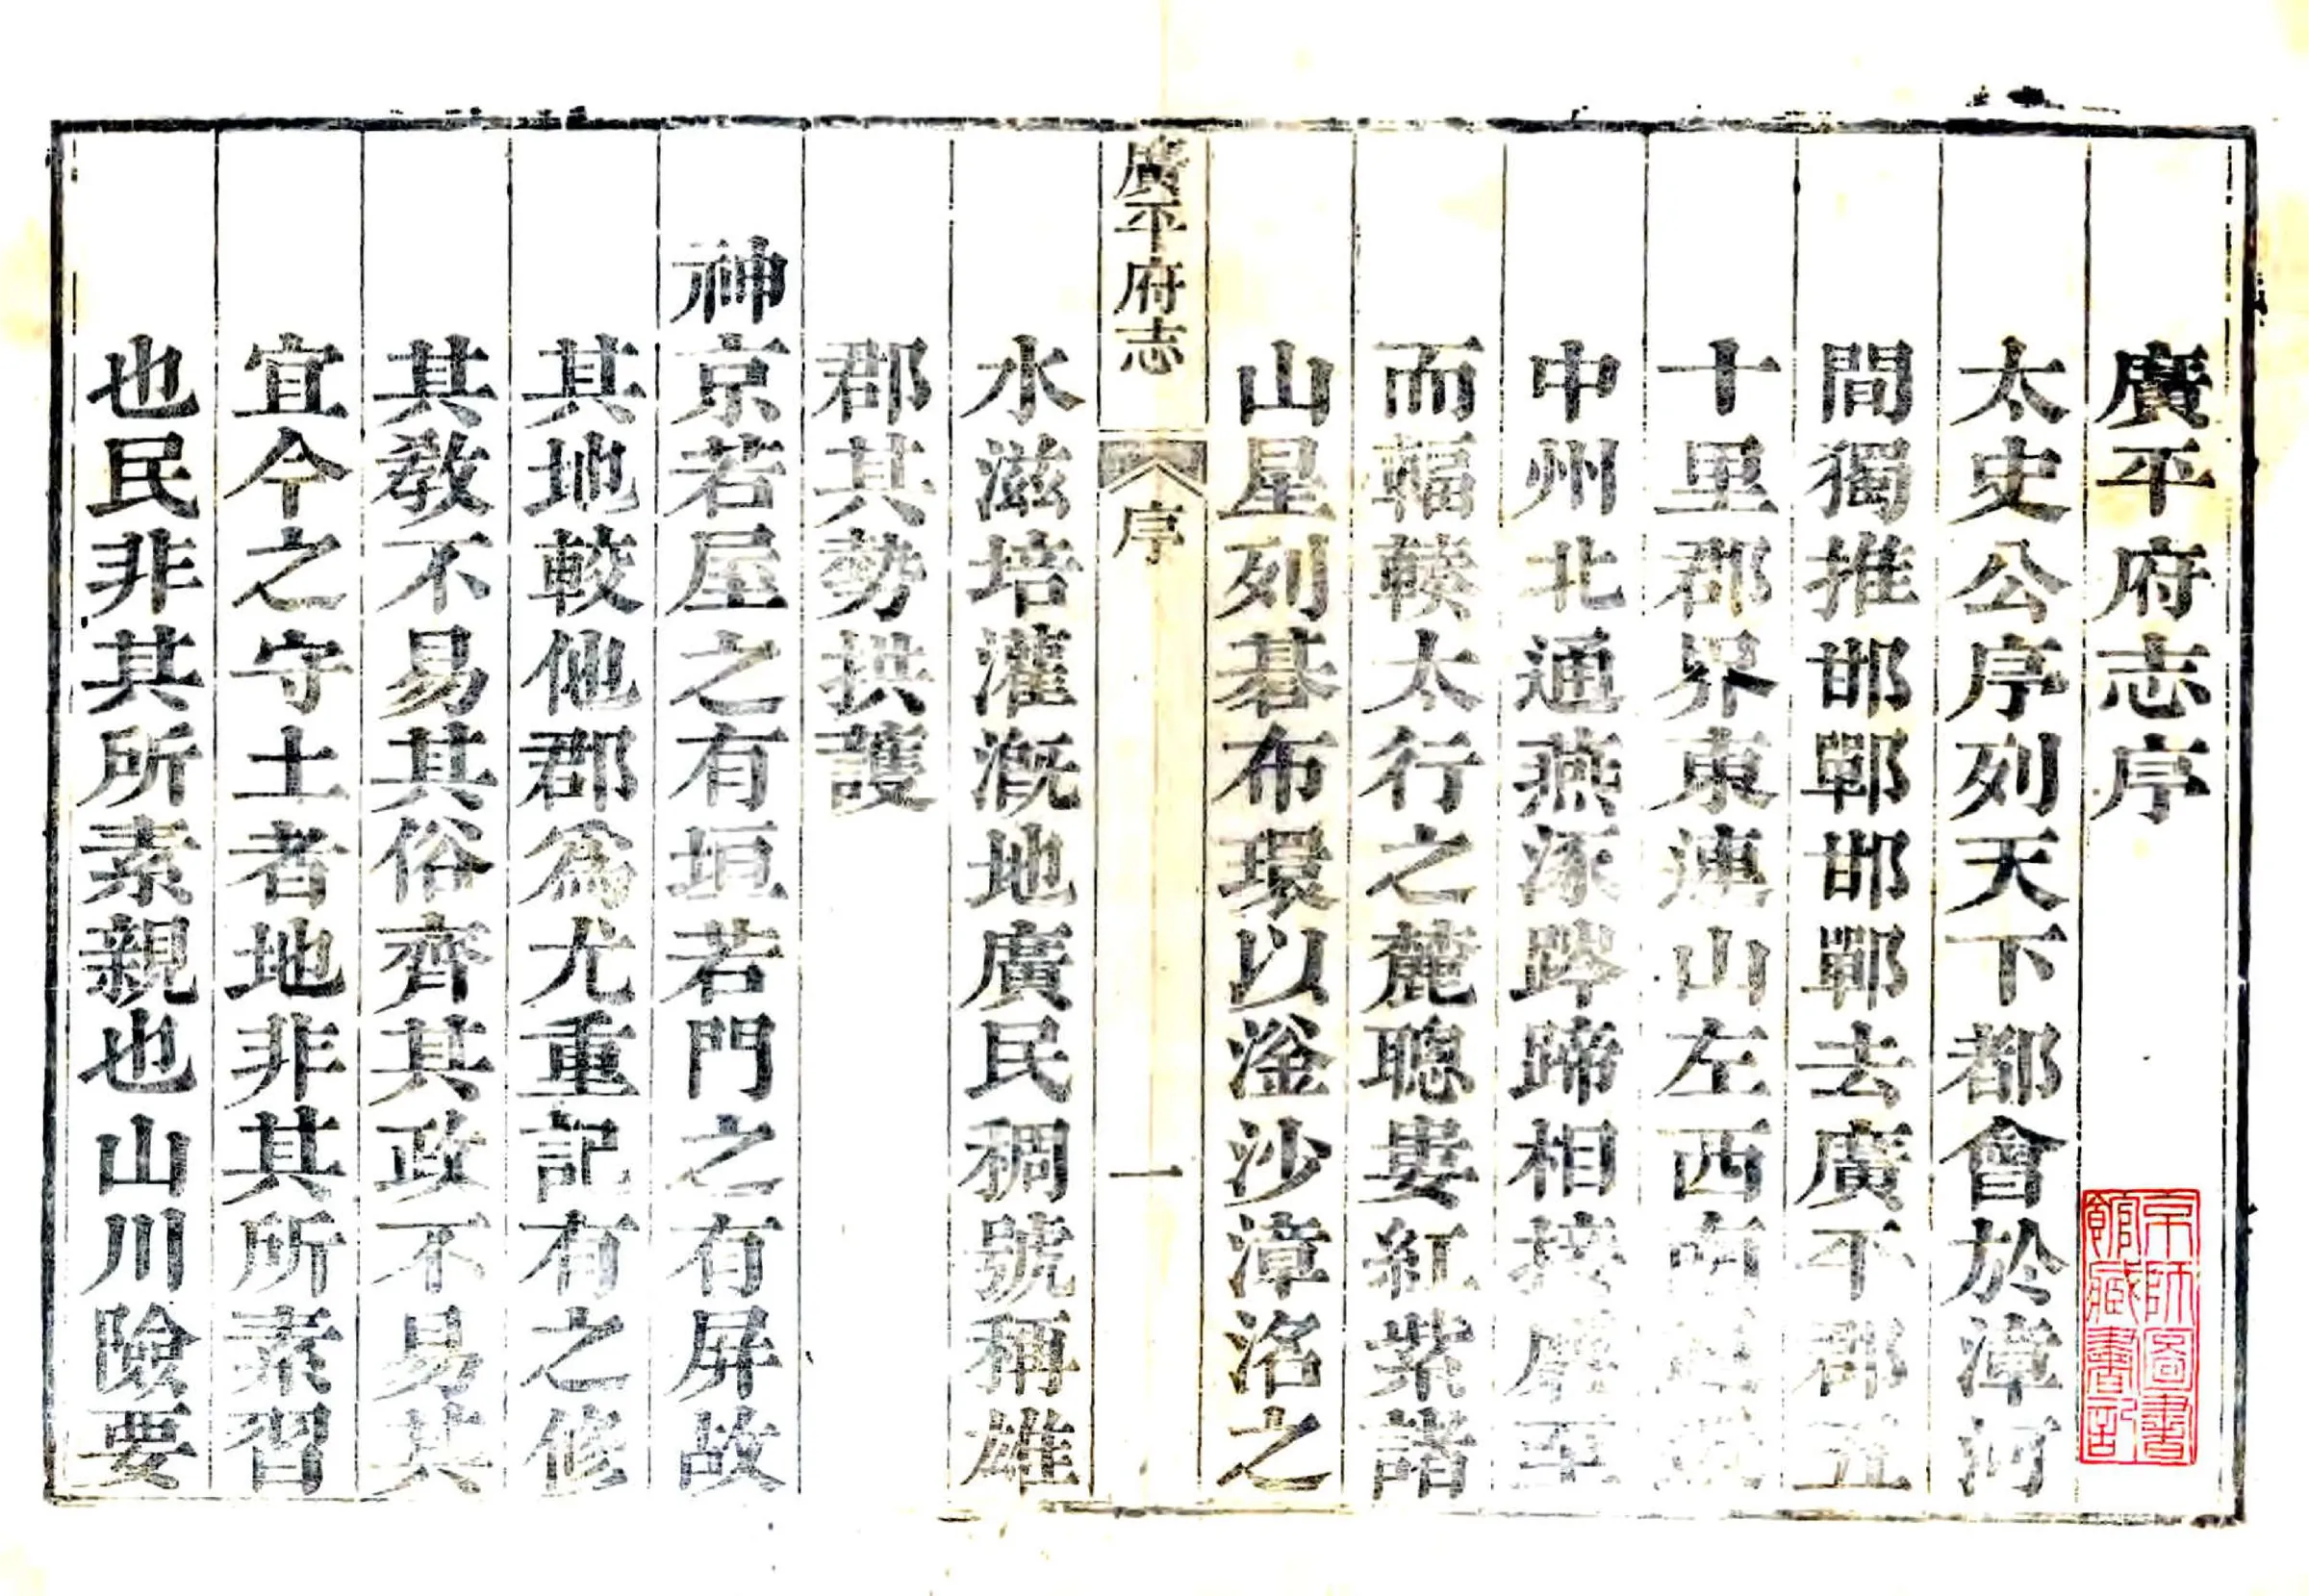 廣平府志序
太史公序列天下都會於漳河
間獨推邯鄲邯鄲去廣不郡五
十里郡界東連山左西南
中州北通燕涿踤蹄相接摩至
而輻輳太行之麓聰婁紅紫諸
山星列碁布環以滏沙漳洺之
廣平府志
序
一
水滋培灌漑地廣民稠號稱雄
郡其勢拱護
神京若屋之有垣若門之有屏故
其地較他郡爲尤重記有之修
其教不易其俗齊其政不易其
宜今之守土者地非其所素習
也民非其所素親也山川險要
京師圖書
館藏書記